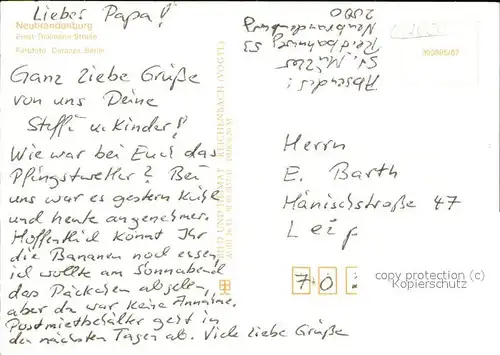 Lieber Papa!
Neubrandenburg
Ernst-Thälmann-Straße
Farbfoto: Darazs, Berlin
Ganz liebe Grüße
von uns Deine
Steffi u. Kinder!
Wie war bei Euch das
Pfingstwetter? Bei
uns war es gestern kühl
und heute angenehmer.
Hoffentlich könnt Ihr
die Bananen noch essen,
ich wollte am Sonnabend
das Päckchen abgeben,
aber da war keine Annahme.
Postmietbehälter geht in
den nächsten Tagen ab. Viele liebe Grüße
BILD UND HEIMAT REICHENBACH (VOGTL)
Absender:
St. Müller
Reitbahnweg 53
Neubrandenburg
2000
Herrn
E. Barth
Hänischstraße 47
Leip
70
copyright protection (c)
Kopierschutz